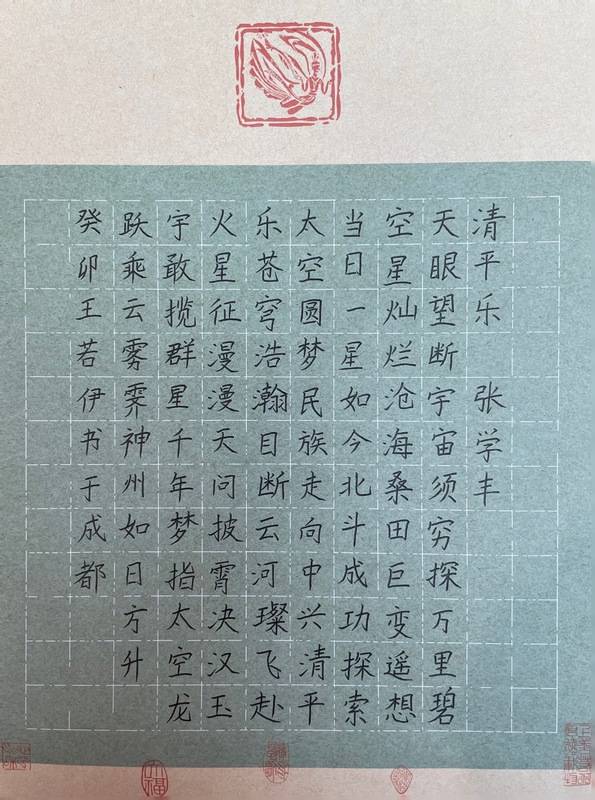 清平乐 张学丰
天眼望断宇宙须穷探万里碧
空星灿烂沧海桑田巨变遥想
当日一星如今北斗成功探索
太空圆梦民族走向中兴清平
乐苍穹浩瀚目断云河璨飞赴
火星征漫漫天问披霄决汉玉
宇敢揽群星千年梦指太空龙
跃乘云雾霁神州如日方升
癸卯王若伊书于成都